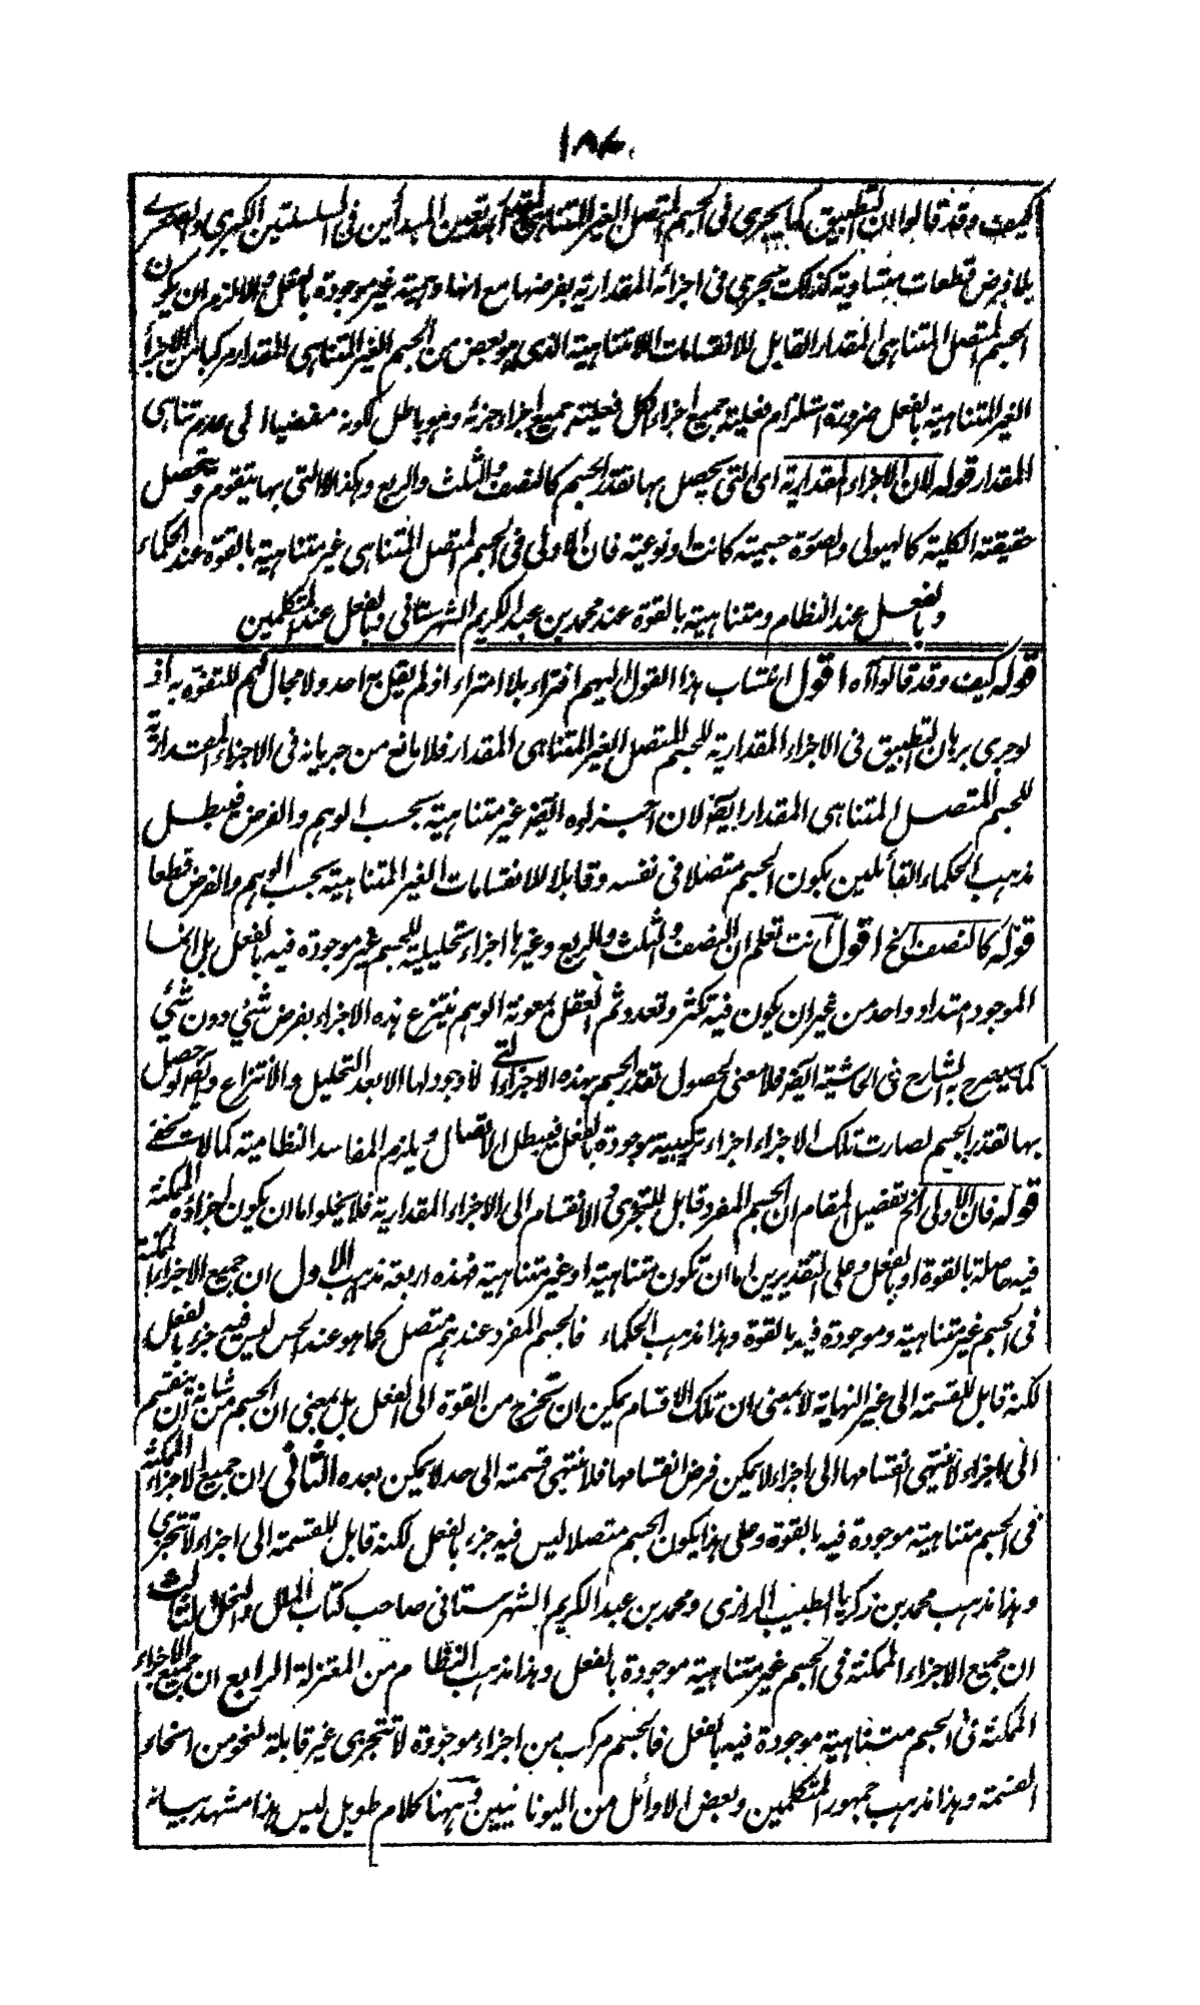 ١٨٧
كيف وقد قالوا ان التطبيق كما يجري في الجسم المتصل الغير المتناهي المقدار بتعين المبدأين في السلسلتين الكبرى والصغرى
بلا فرض قطعات متساوية كذلك يجري في اجزائه المقدارية بفرضها مع انها وهمية غير موجودة بالفعل والا لزم ان يكون
الجسم المتصل المتناهي المقدار القابل للانقسامات اللامتناهية الذي هو بعض من الجسم الغير المتناهي المقدار مركبا من الاجزاء
الغير المتناهية بالفعل ضرورة استلزام فعلية جميع اجزاء الكل فعلية جميع اجزاء جزئه وهو باطل لكونه مفضيا الى عدم تناهي
المقدار قوله لان الاجزاء المقدارية اي التي يحصل بها تقدر الجسم كالنصف والثلث والربع وهكذا لا التي بها يتقوم ويتحصل
حقيقته الكلية كالهيولى والصورة جسمية كانت او نوعية فان الاولى في الجسم المتصل المتناهي غير متناهية بالقوة عند الحكماء
وبالفعل عند النظام ومتناهية بالقوة عند محمد بن عبد الكريم الشهرستاني وبالفعل عند المتكلمين
قوله كيف وقد قالوا اه اقول انتساب هذا القول اليهم افتراء بلا امتراء اذ لم يقل به احد ولا مجال لهم للتفوه به اذ
لو جرى برهان التطبيق في الاجزاء المقدارية للجسم المتصل الغير المتناهي المقدار فلا مانع من جريانه في الاجزاء المقدارية
للجسم المتصل المتناهي المقدار ايضا لان اجزاءه ايضا غير متناهية بحسب الوهم والفرض فيبطل
مذهب الحكماء القائلين بكون الجسم متصلا في نفسه وقابلا للانقسامات الغير المتناهية بحسب الوهم والفرض قطعا
قوله كالنصف الخ اقول انت تعلم ان النصف والثلث والربع وغيرها اجزاء تحليلية للجسم غير موجودة فيه بالفعل بل انما
الموجود امتداد واحد من غير ان يكون فيه تكثر وتعدد ثم العقل بمعونة الوهم ينتزع هذه الاجزاء بفرض شيء دون شيء
كما سيصرح به الشارح في الحاشية ايضا فلا معنى لحصول تقدر الجسم بهذه الاجزاء التي لا وجود لها الا بعد التحليل والانتزاع وايضا لو حصل
بها تقدر الجسم لصارت تلك الاجزاء اجزاء تركيبية موجودة بالفعل فيبطل الاتصال ويلزم المفاسد النظامية كما لا يخفى
قوله فان الاولى الخ تفصيل المقام ان الجسم المفرد قابل للتجزي والانقسام الى الاجزاء المقدارية فلا يخلو اما ان يكون اجزاؤه الممكنة
فيه حاصلة بالقوة او بالفعل وعلى التقديرين اما ان تكون متناهية او غير متناهية فهذه اربعة مذاهب الاول ان جميع الاجزاء الممكنة
في الجسم غير متناهية وموجودة فيه بالقوة وهذا مذهب الحكماء فالجسم المفرد عندهم متصل كما هو عند الحس ليس فيه جزء بالفعل
لكنه قابل للقسمة الى غير النهاية لا بمعنى ان تلك الاقسام يمكن ان تخرج من القوة الى الفعل بل بمعنى ان الجسم من شانه ان ينقسم
الى اجزاء لا ينتهي انقسامها الى اجزاء لا يمكن فرض انقسامها فلا تنتهي قسمته الى حد لا يمكن بعده الثاني ان جميع الاجزاء الممكنة
في الجسم متناهية موجودة فيه بالقوة وعلى هذا يكون الجسم متصلا ليس فيه جزء بالفعل لكنه قابل للقسمة الى اجزاء لا تتجزى
وهذا مذهب محمد بن زكريا الطبيب الرازي ومحمد بن عبد الكريم الشهرستاني صاحب كتاب الملل والنحل الثالث
ان جميع الاجزاء الممكنة في الجسم غير متناهية موجودة بالفعل وهذا مذهب النظام من المعتزلة الرابع ان جميع الاجزاء
الممكنة في الجسم متناهية موجودة فيه بالفعل فالجسم مركب من اجزاء موجودة لا تتجزى غير قابلة لنحو من انحاء
القسمة وهذا مذهب جمهور المتكلمين وبعض الاوائل من اليونانيين وههنا كلام طويل ليس هذا مشهد بيانه